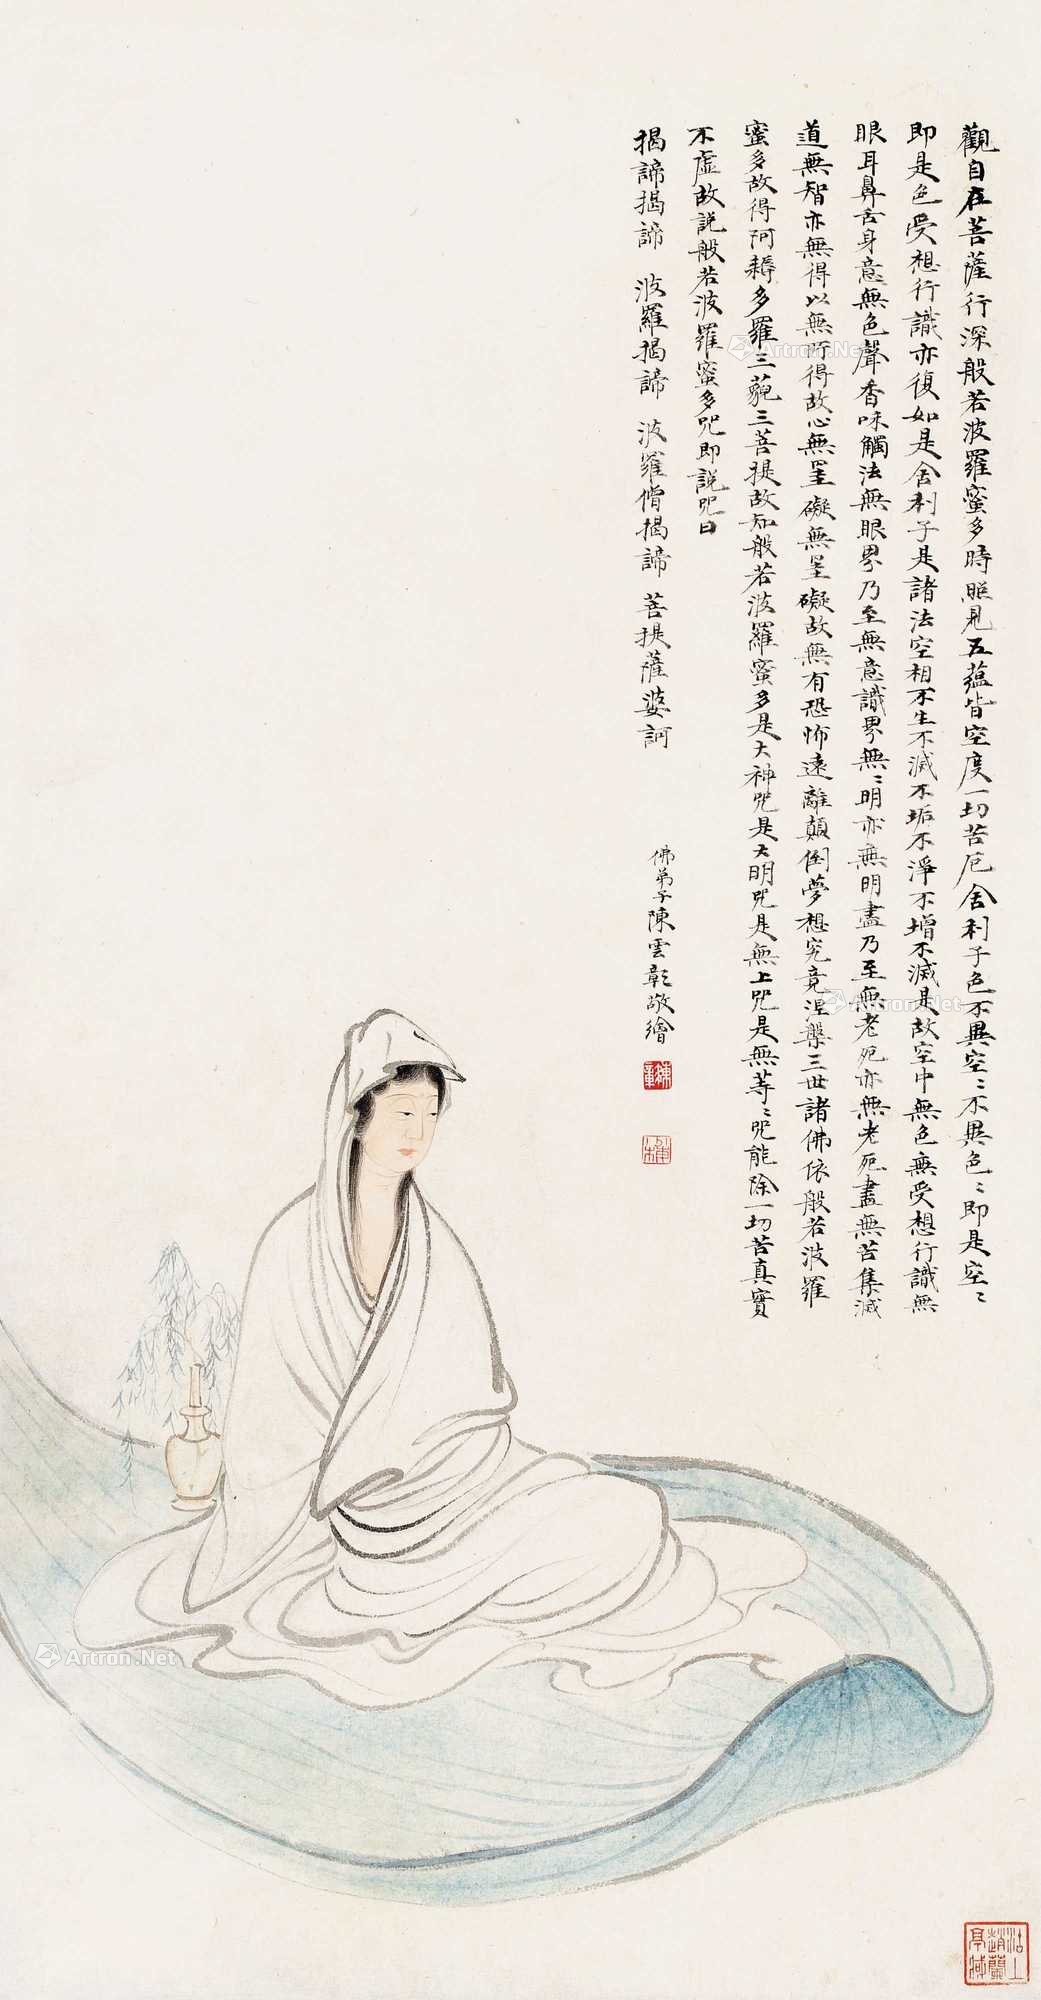 觀自在菩薩行深般若波羅蜜多時照見五蘊皆空度一切苦厄舍利子色不異空〻不異色〻即是空〻
即是色受想行識亦復如是舍利子是諸法空相不生不滅不垢不淨不增不減是故空中無色無受想行識無
眼耳鼻舌身意無色聲香味觸法無眼界乃至無意識界無〻明亦無明盡乃至無老死亦無老死盡無苦集滅
道無智亦無得以無所得故心無罣礙無罣礙故無有恐怖遠離顛倒夢想究竟涅槃三世諸佛依般若波羅
蜜多故得阿耨多羅三藐三菩提故知般若波羅蜜多是大神咒是大明咒是無上咒是無等〻咒能除一切苦真實
不虛故說般若波羅蜜多咒即說咒曰
揭諦揭諦 波羅揭諦 波羅僧揭諦 菩提薩婆訶
佛弟子陳雲彰敬繪
沽上
趙蘭
亭藏
Artron.Net
Artron.Net
Artron.Net